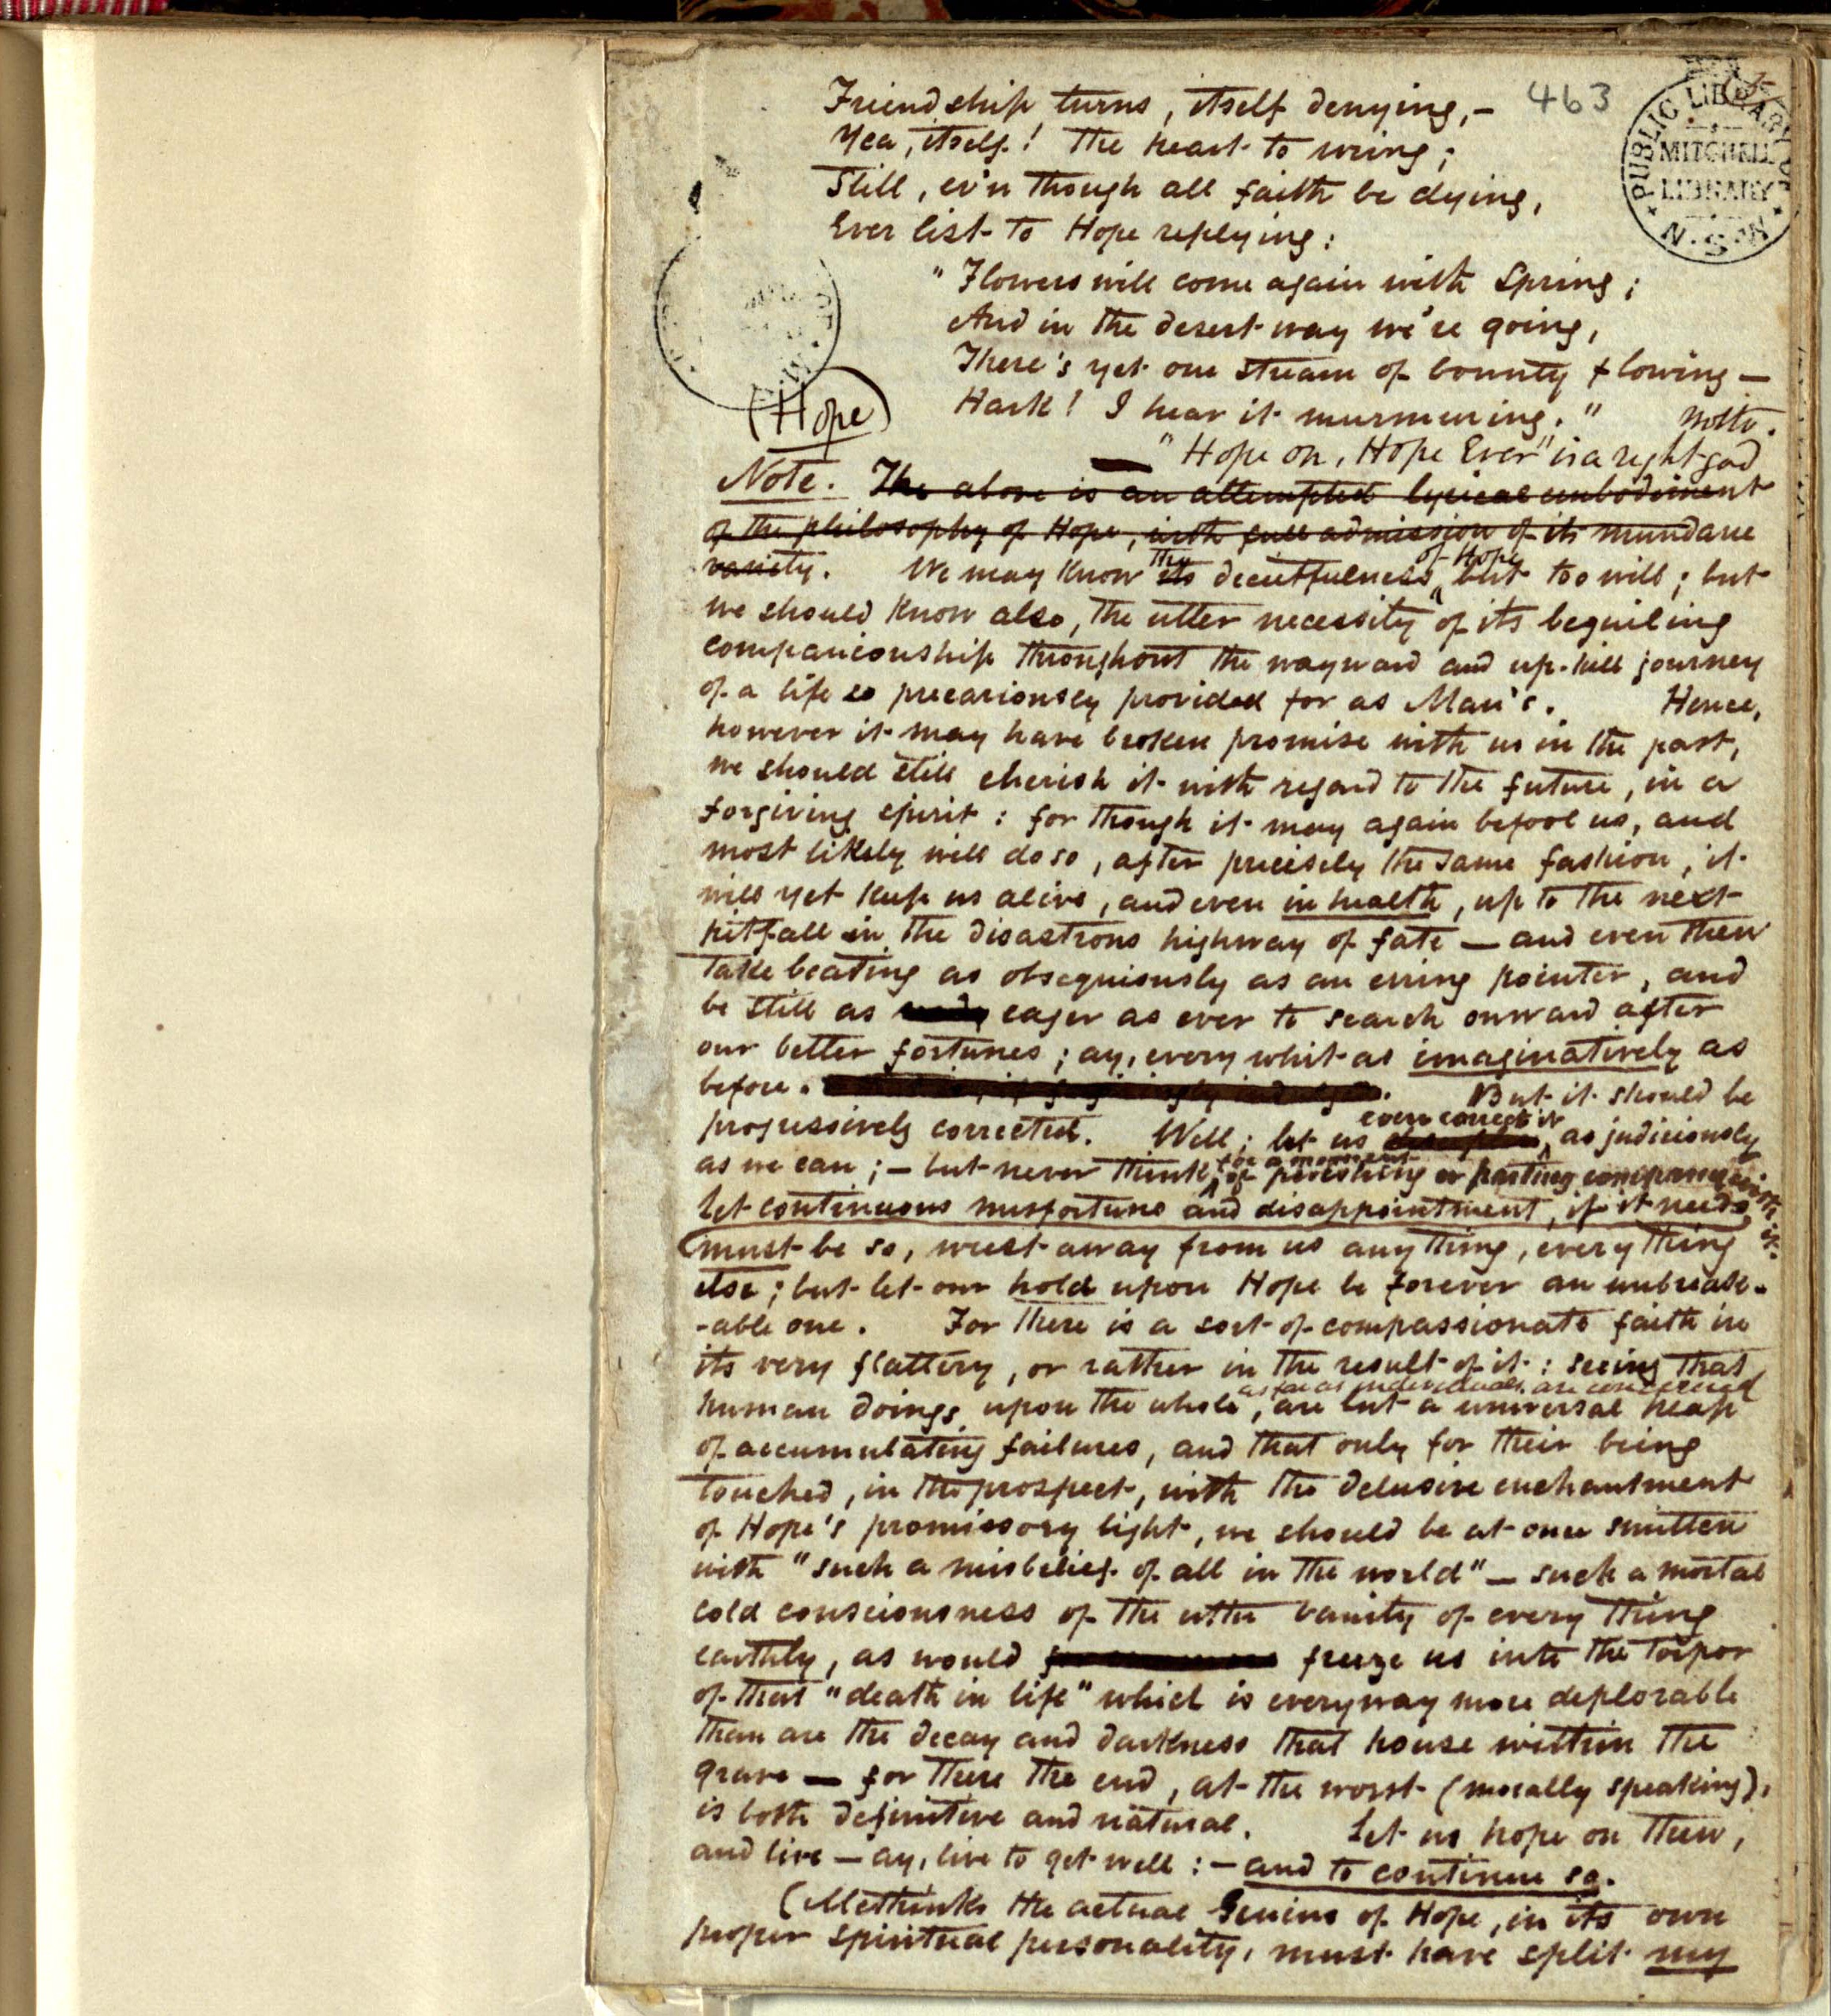 463
Friendship turns, itself denying, —
Yea, itself! the heart to wring;
Still, ev'n though all faith be dying,
Ever list to Hope replying:
"Flowers will come again with Spring;
And in the desert way we're going,
There's yet one stream of bounty flowing —
Hark! I hear it murmuring."
PUBLIC LIBRARY OF
MITCHELL
LIBRARY
N.S.W.
(Hope)
"Hope on, Hope Ever" is a right good
Motto.
Note. The above is an attempted lyrical embodiment
of the philosophy of Hope, with full admission of its mundane
vanity. We may know its the deceitfulness of Hope but too well; but
we should know also, the utter necessity of its beguiling
companionship throughout the wayward and up-hill journey
of a life so precariously provided for as Man's. Hence,
however it may have broken promise with us in the past,
we should still cherish it with regard to the future, in a
forgiving spirit: for though it may again befool us, and
most likely will do so, after precisely the same fashion, it
will yet keep us alive, and even in health, up to the next
pitfall in the disastrous highway of fate — and even then
take beating as obsequiously as an erring pointer, and
be still as ready eager as ever to search onward after
our better fortunes; ay, every whit as imaginatively as
before. But it should be
progressively corrected. Well; let us even correct it as judiciously
as we can; — but never think, for a moment of perishing or parting company with it.
Let continuous misfortune and disappointment, if it needs
must be so, wrest away from us any thing, every thing
else; but let our hold upon Hope be forever an unbreak-
-able one. For there is a sort of compassionate faith in
its very flattery, or rather in the result of it: seeing that
human doings upon the whole, as far as individuals are concerned are but a universal heap
of accumulating failures, and that only for their being
touched, in the prospect, with the delusive enchantment
of Hope's promissory light, we should be at once smitten
with "such a misbelief of all in the world" — such a mortal
cold consciousness of the utter vanity of every thing
earthly, as would freeze us into the torpor
of that "death in life" which is everyway more deplorable
than are the decay and darkness that house within the
grave — for there the end, at the worst (morally speaking),
is both definitive and natural. Let us hope on then,
and live — ay, live to get well: — and to continue so.
(Methinks the actual Genius of Hope, in its own
proper spiritual personality, must have split my